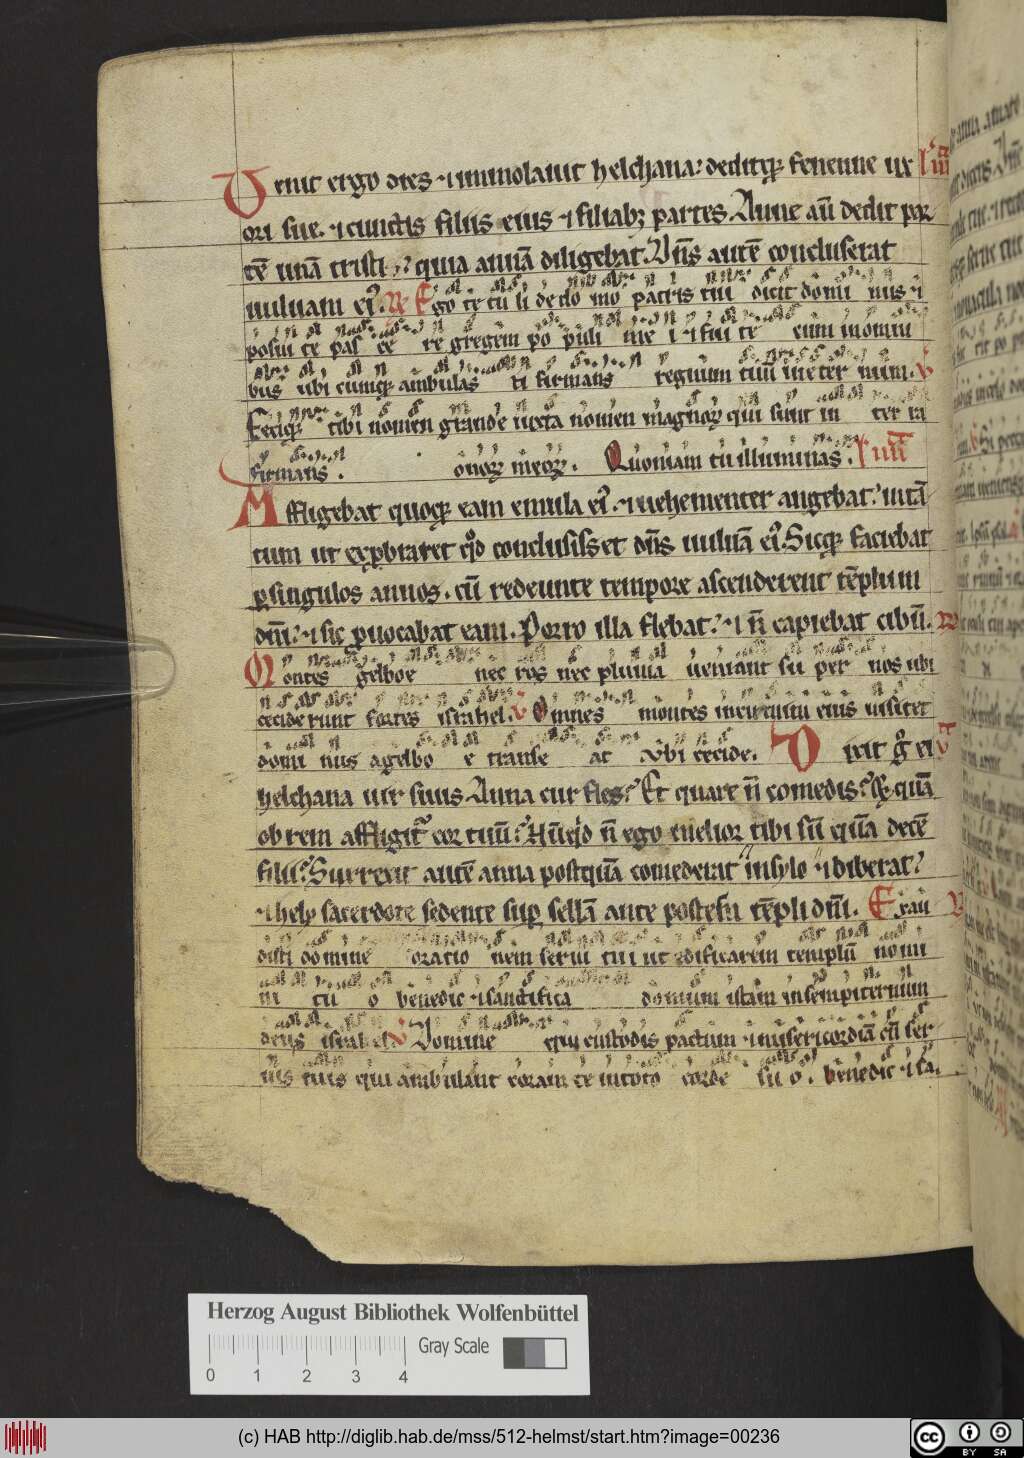 Venit ergo dies ⁊ immolauit helchana: deditq; fenenne ux
ori sue. ⁊ cunctis filiis eius ⁊ filiab; partes. Anne aū dedit par
tē unā tristis quia annā diligebat. Dn̄s autē concluserat
uuluam ei'. R Ego te tu li de do mo patris tui dicit domi nus ⁊
posui te pas ce re gregem po puli me i ⁊ fui te cum in omni
bus ubi cumq; ambulas ti firmans regnum tuū in eter num. v
Feciq; tibi nomen grande iuxta nomen magnoꝝ qui sunt in ter ra
firmans. Quoniam tu illuminas. l' iiii
Affligebat quoq; eam emula ei'. ⁊ uehementer angebat. intā
tum ut exprobraret qd conclusisset dn̄s uuluā ei'. Sicq; faciebat
ꝑ singulos annos. cū redeunte tempore ascenderent tēplum
dn̄i. ⁊ sic ꝓuocabat eam. Porro illa flebat. ⁊ n̄ capiebat cibū. R
Montes gelboe nec ros nec pluuia ueniant su per uos ubi
ceciderunt fortes israhel. v Omnes montes in circuitu eius uisitet
domi nus a gelbo e transe at Vbi cecide. Dixit g ei
helchana uir suus Anna cur fles? Et quare n̄ comedis? Et quā
ob rem affligit' cor tuū? Nūqd n̄ ego melior tibi sū quā decē
filii? Surrexit autē anna postquā comederat in sylo ⁊ biberat.
⁊ hely sacerdote sedente sup sellā ante postes tēpli dn̄i. Exau
disti domine oratio nem serui tui ut edificarem templū nomi
ni tu o benedic ⁊ sanctifica domum istam in sempiternum
deus israhel v Domine qui custodis pactum ⁊ misericordiā cū ser
uis tuis qui ambulant coram te in toto corde su o. benedic ⁊ sa.
Herzog August Bibliothek Wolfenbüttel
Gray Scale
0 1 2 3 4
(c) HAB http://diglib.hab.de/mss/512-helmst/start.htm?image=00236
cc BY SA